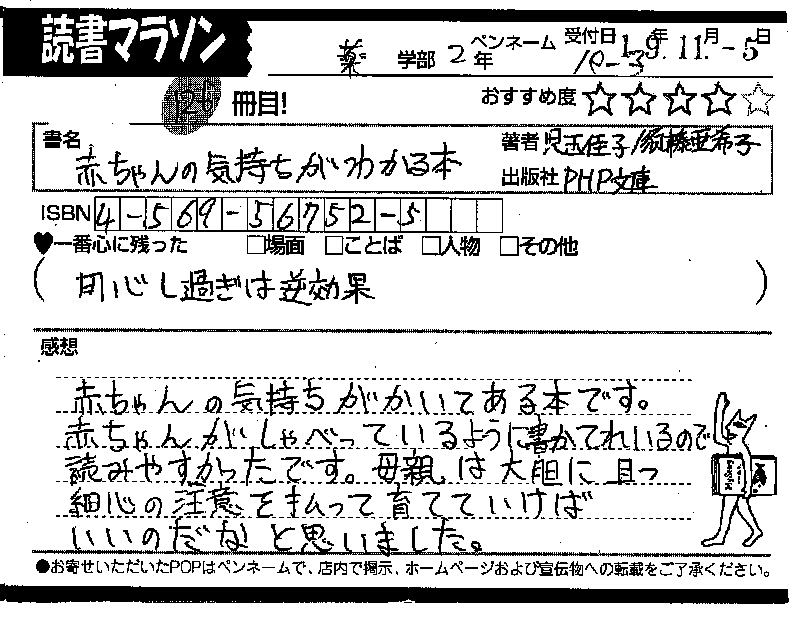 読書マラソン
薬 学部 2年 ペンネーム 受付日 19年11月-5日
10-3
126 冊目! おすすめ度 ☆☆☆☆☆
書名 赤ちゃんの気持ちがわかる本
著者 児玉佳子/須藤亜希子
出版社 PHP文庫
ISBN 4-569-56752-5
♥一番心に残った □場面 □ことば □人物 □その他
(用心し過ぎは逆効果)
感想
赤ちゃんの気持ちがかいてある本です。
赤ちゃんがしゃべっているように書かてれいるので
読みやすかったです。母親は大胆に且つ
細心の注意を払って育てていけば
いいのだなと思いました。
●お寄せいただいたPOPはペンネームで、店内で掲示、ホームページおよび宣伝物への転載をご了承ください。